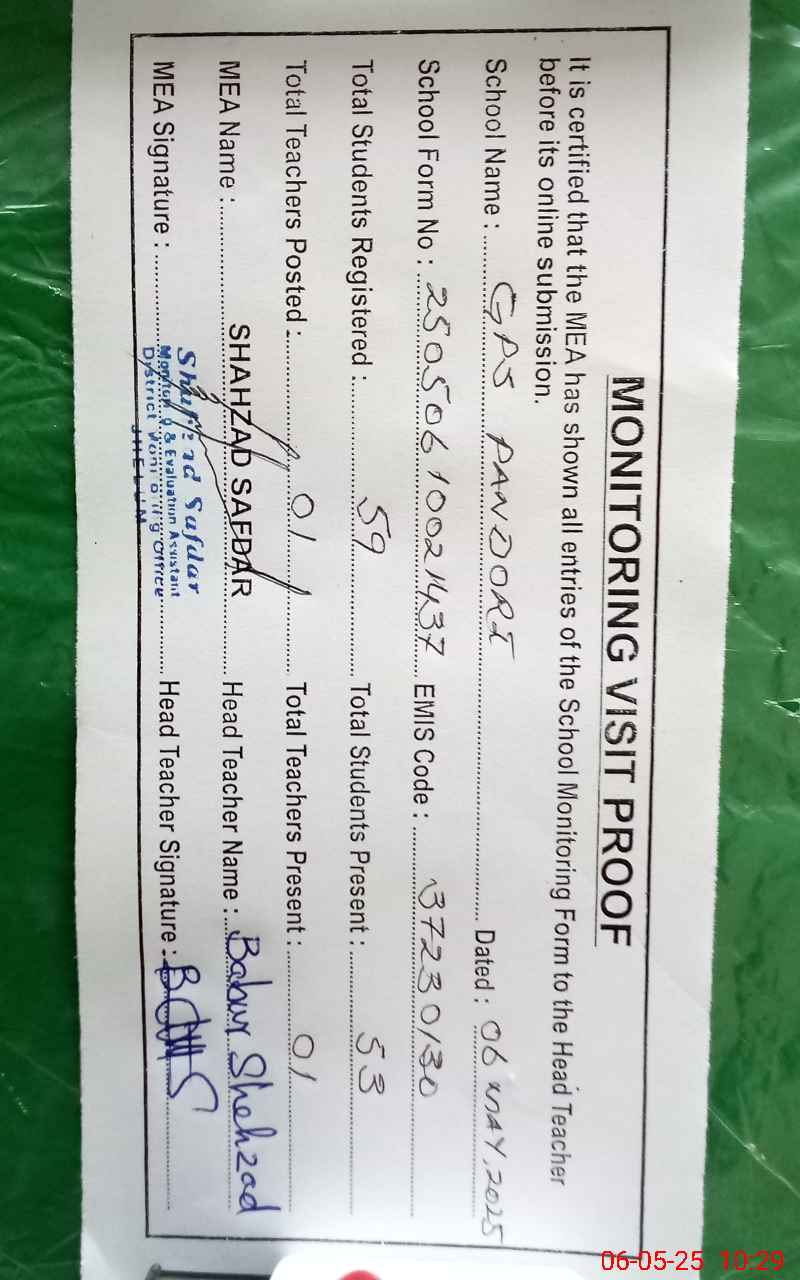 MONITORING VISIT PROOF
It is certified that the MEA has shown all entries of the School Monitoring Form to the Head Teacher
before its online submission.
School Name : GPS PANDORI Dated : 06 MAY, 2025
School Form No : 25050610021437 EMIS Code : 37230130
Total Students Registered : 59 Total Students Present : 53
Total Teachers Posted : 01 Total Teachers Present : 01
MEA Name : SHAHZAD SAFDAR Head Teacher Name : Babur Shehzad
MEA Signature : Head Teacher Signature :
Safdar
& Evaluation Assistant
District Office
JHELUM
06-05-25 10:29